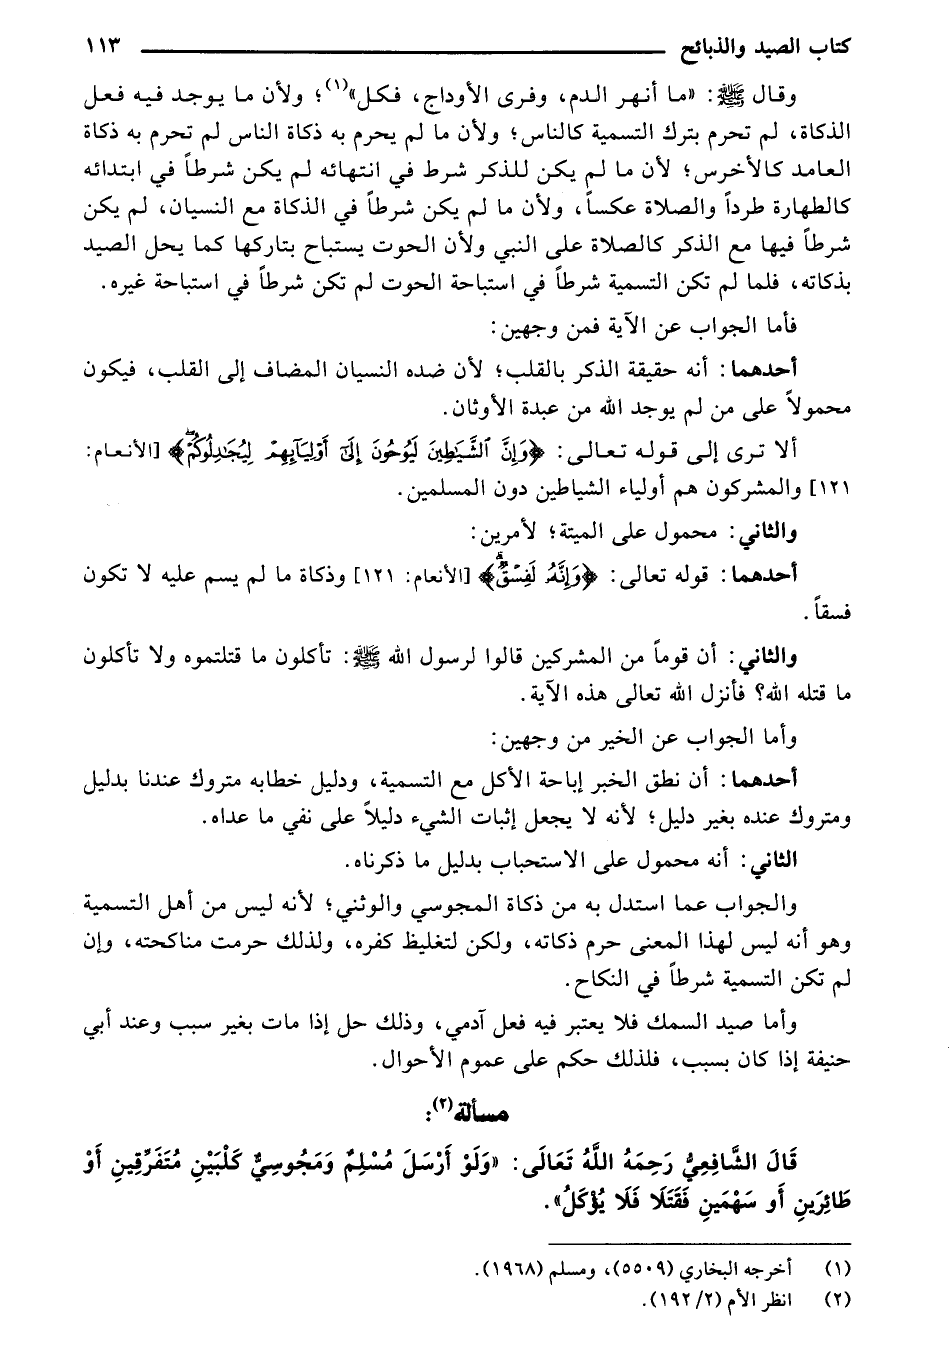 كتاب الصيد والذبائح ١١٣
وقال ﷺ: «ما أنهر الدم، وفرى الأوداج، فكل»(١)؛ ولأن ما يوجد فيه فعل
الذكاة، لم تحرم بترك التسمية كالناس؛ ولأن ما لم يحرم به ذكاة الناس لم تحرم به ذكاة
العامد كالأخرس؛ لأن ما لم يكن للذكر شرط في انتهائه لم يكن شرطاً في ابتدائه
كالطهارة طرداً والصلاة عكساً، ولأن ما لم يكن شرطاً في الذكاة مع النسيان، لم يكن
شرطاً فيها مع الذكر كالصلاة على النبي ولأن الحوت يستباح بتاركها كما يحل الصيد
بذكاته، فلما لم تكن التسمية شرطاً في استباحة الحوت لم تكن شرطاً في استباحة غيره.
فأما الجواب عن الآية فمن وجهين:
أحدهما: أنه حقيقة الذكر بالقلب؛ لأن ضده النسيان المضاف إلى القلب، فيكون
محمولاً على من لم يوجد الله من عبدة الأوثان.
ألا ترى إلى قوله تعالى: ﴿وَإِنَّ ٱلشَّيَـٰطِينَ لَيُوحُونَ إِلَىٰٓ أَوْلِيَآئِهِمْ لِيُجَـٰدِلُوكُمْۖ﴾ [الأنعام:
١٢١] والمشركون هم أولياء الشياطين دون المسلمين.
والثاني: محمول على الميتة؛ لأمرين:
أحدهما: قوله تعالى: ﴿وَإِنَّهُۥ لَفِسْقٌۗ﴾ [الأنعام: ١٢١] وذكاة ما لم يسم عليه لا تكون
فسقاً.
والثاني: أن قوماً من المشركين قالوا لرسول الله ﷺ: تأكلون ما قتلتموه ولا تأكلون
ما قتله الله؟ فأنزل الله تعالى هذه الآية.
وأما الجواب عن الخير من وجهين:
أحدهما: أن نطق الخبر إباحة الأكل مع التسمية، ودليل خطابه متروك عندنا بدليل
ومتروك عنده بغير دليل؛ لأنه لا يجعل إثبات الشيء دليلاً على نفي ما عداه.
الثاني: أنه محمول على الاستحباب بدليل ما ذكرناه.
والجواب عما استدل به من ذكاة المجوسي والوثني؛ لأنه ليس من أهل التسمية
وهو أنه ليس لهذا المعنى حرم ذكاته، ولكن لتغليظ كفره، ولذلك حرمت مناكحته، وإن
لم تكن التسمية شرطاً في النكاح.
وأما صيد السمك فلا يعتبر فيه فعل آدمي، وذلك حل إذا مات بغير سبب وعند أبي
حنيفة إذا كان بسبب، فلذلك حكم على عموم الأحوال.
مسألة(٢):
قَالَ الشَّافِعِيُّ رَحِمَهُ اللَّهُ تَعَالَى: «وَلَوْ أَرْسَلَ مُسْلِمٌ وَمَجُوسِيٌّ كَلْبَيْنِ مُتَفَرِّقِينِ أَوْ
طَائِرَينِ أَو سَهْمَينِ فَقَتَلَا فَلَا يُؤْكَلُ».
(١) أخرجه البخاري (٥٥٠٩)، ومسلم (١٩٦٨).
(٢) انظر الأم (٢/ ١٩٢).